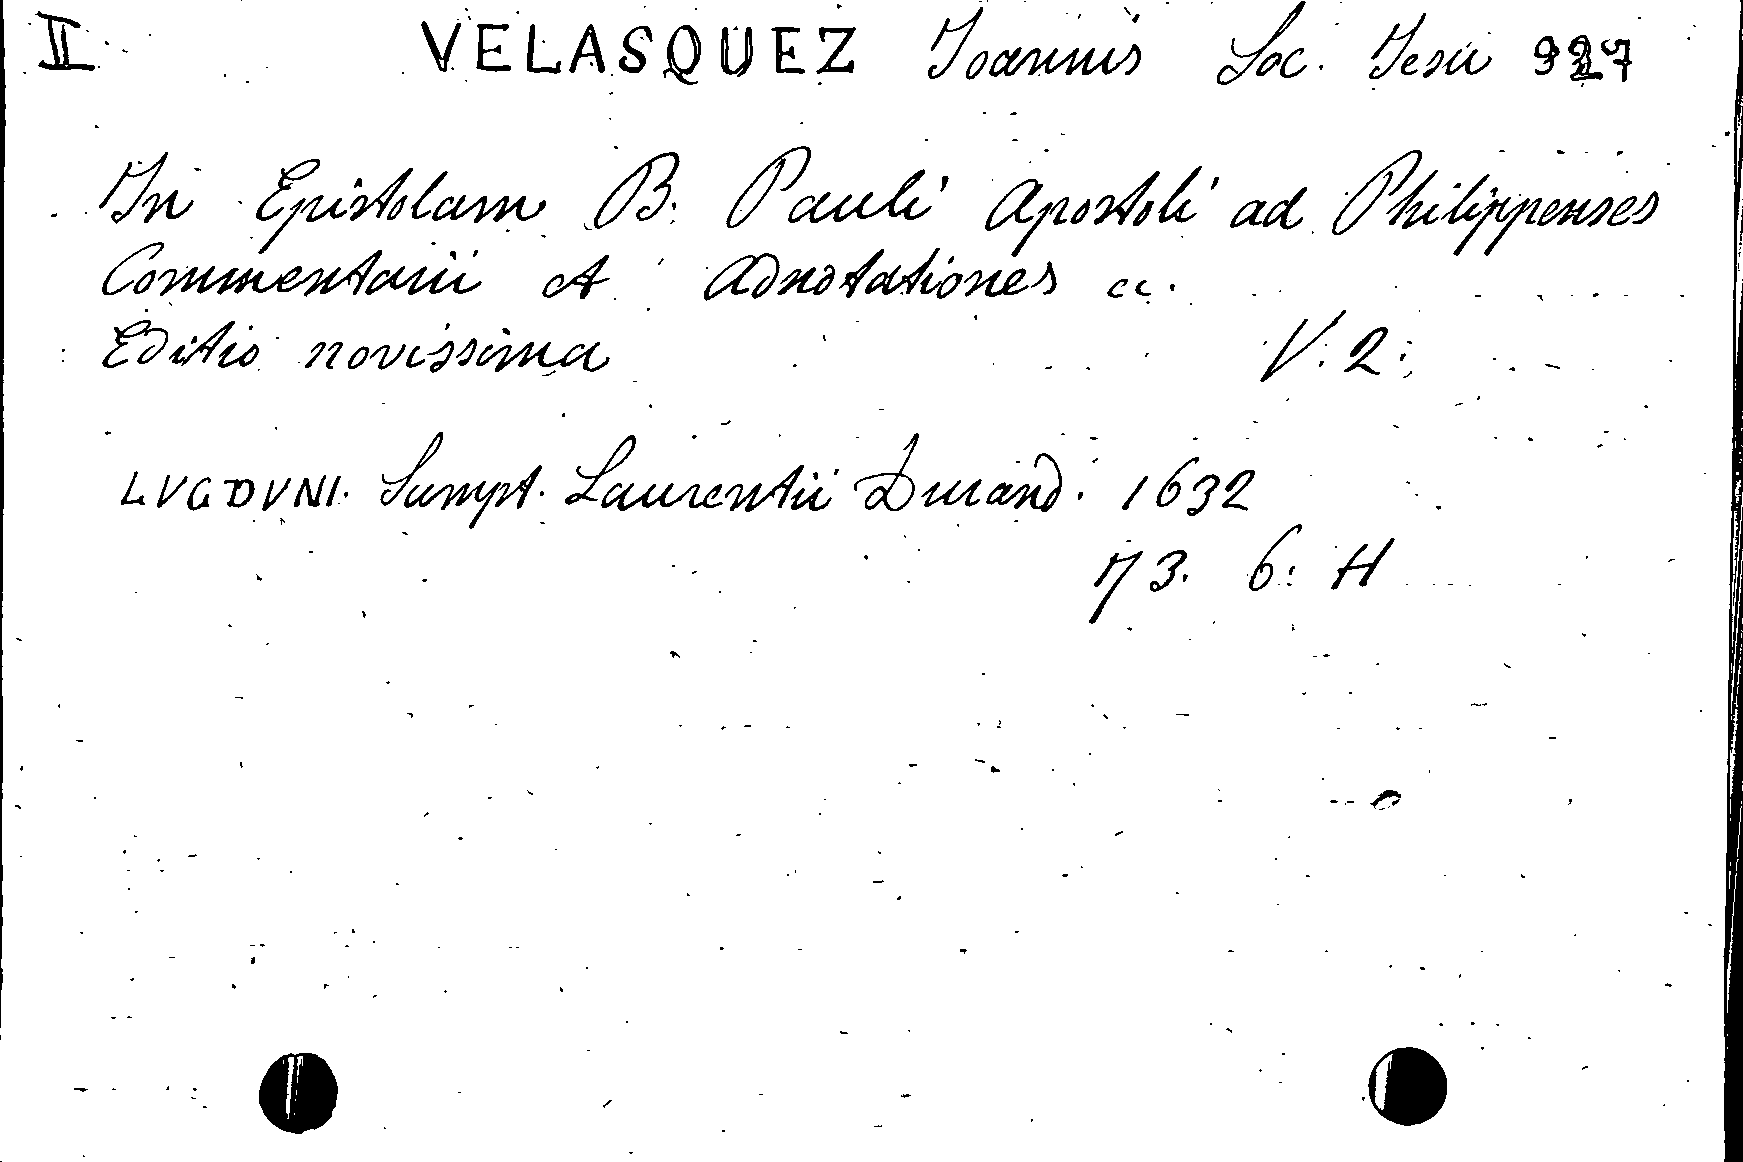 II VELASQUEZ Joannis Soc. Jesu 927
In Epistolam B. Pauli Apostoli ad Philippenses
Commentarii et Adnotationes cc.
Editio novissima V. 2.
LVGDVNI. Sumpt. Laurentii Durand. 1632
73. 6. H